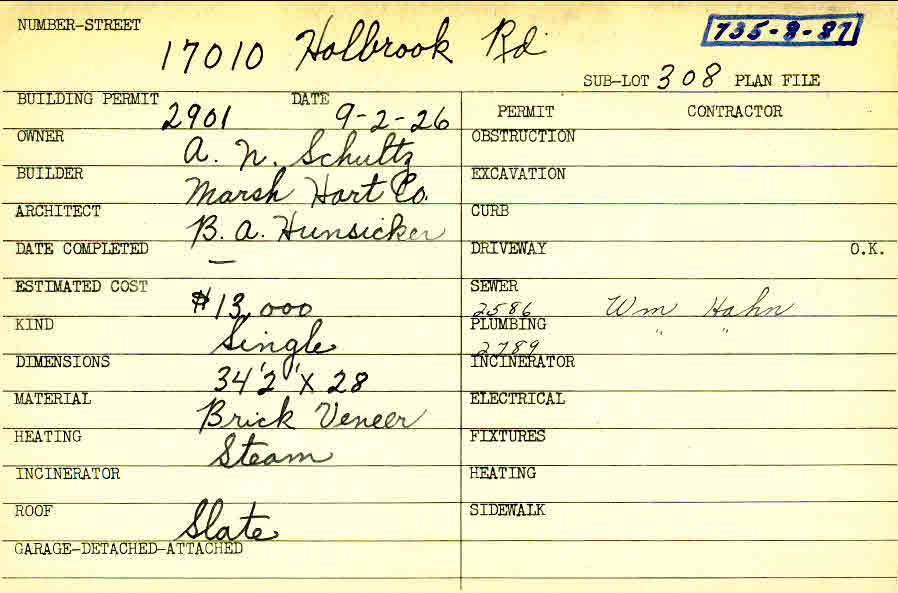 NUMBER-STREET 17010 Holbrook Rd. 735-8-87
SUB-LOT 308 PLAN FILE
BUILDING PERMIT 2901 DATE 9-2-26
OWNER A. N. Schultz
BUILDER Marsh Hart Co.
ARCHITECT B. A. Hunsicker
DATE COMPLETED —
ESTIMATED COST $13,000
KIND Single
DIMENSIONS 34'2" X 28
MATERIAL Brick Veneer
HEATING Steam
INCINERATOR
ROOF Slate
GARAGE-DETACHED-ATTACHED
PERMIT CONTRACTOR
OBSTRUCTION
EXCAVATION
CURB
DRIVEWAY O.K.
SEWER 2586 Wm Hahn
PLUMBING 2789 " "
INCINERATOR
ELECTRICAL
FIXTURES
HEATING
SIDEWALK